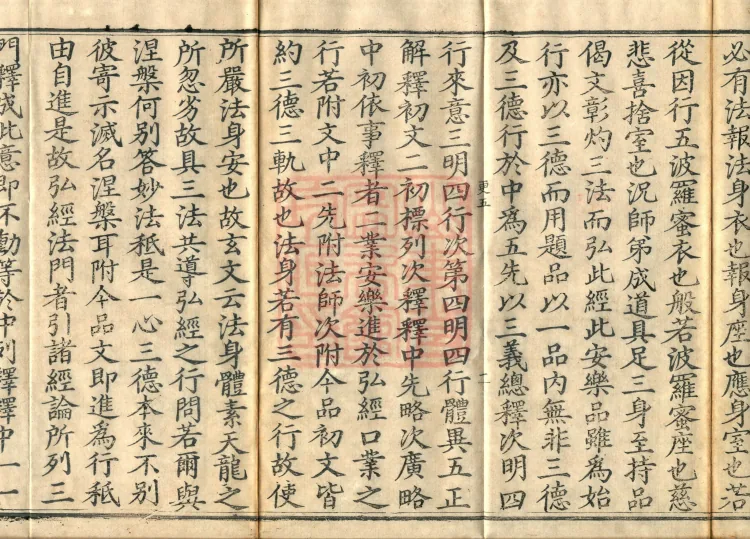 必有法報法身衣也報身座也應身室也若
從因行五波羅蜜衣也般若波羅蜜座也慈
悲喜捨室也況師弟成道具足三身至持品
偈文彰灼三法而弘此經此安樂品雖為始
行亦以三德而用題品以一品內無非三德
及三德行於中為五先以三義總釋次明四
更五
二
行來意三明四行次第四明四行體異五正
解釋初文二初標列次釋釋中先略次廣略
中初依事釋者二業安樂進於弘經口業之
行若附文中二先附法師次附今品初文皆
約三德三軌故也法身若有三德之行故使
所嚴法身安也故玄文云法身體素天龍之
所忽劣故具三法共導弘經之行問若爾與
涅槃何別答妙法秖是一心三德本來不別
彼寄示滅名涅槃耳附今品文即進為行秖
由自進是故弘經法門者引諸經論所列三
門釋成此意即不動等於中列釋釋中一一